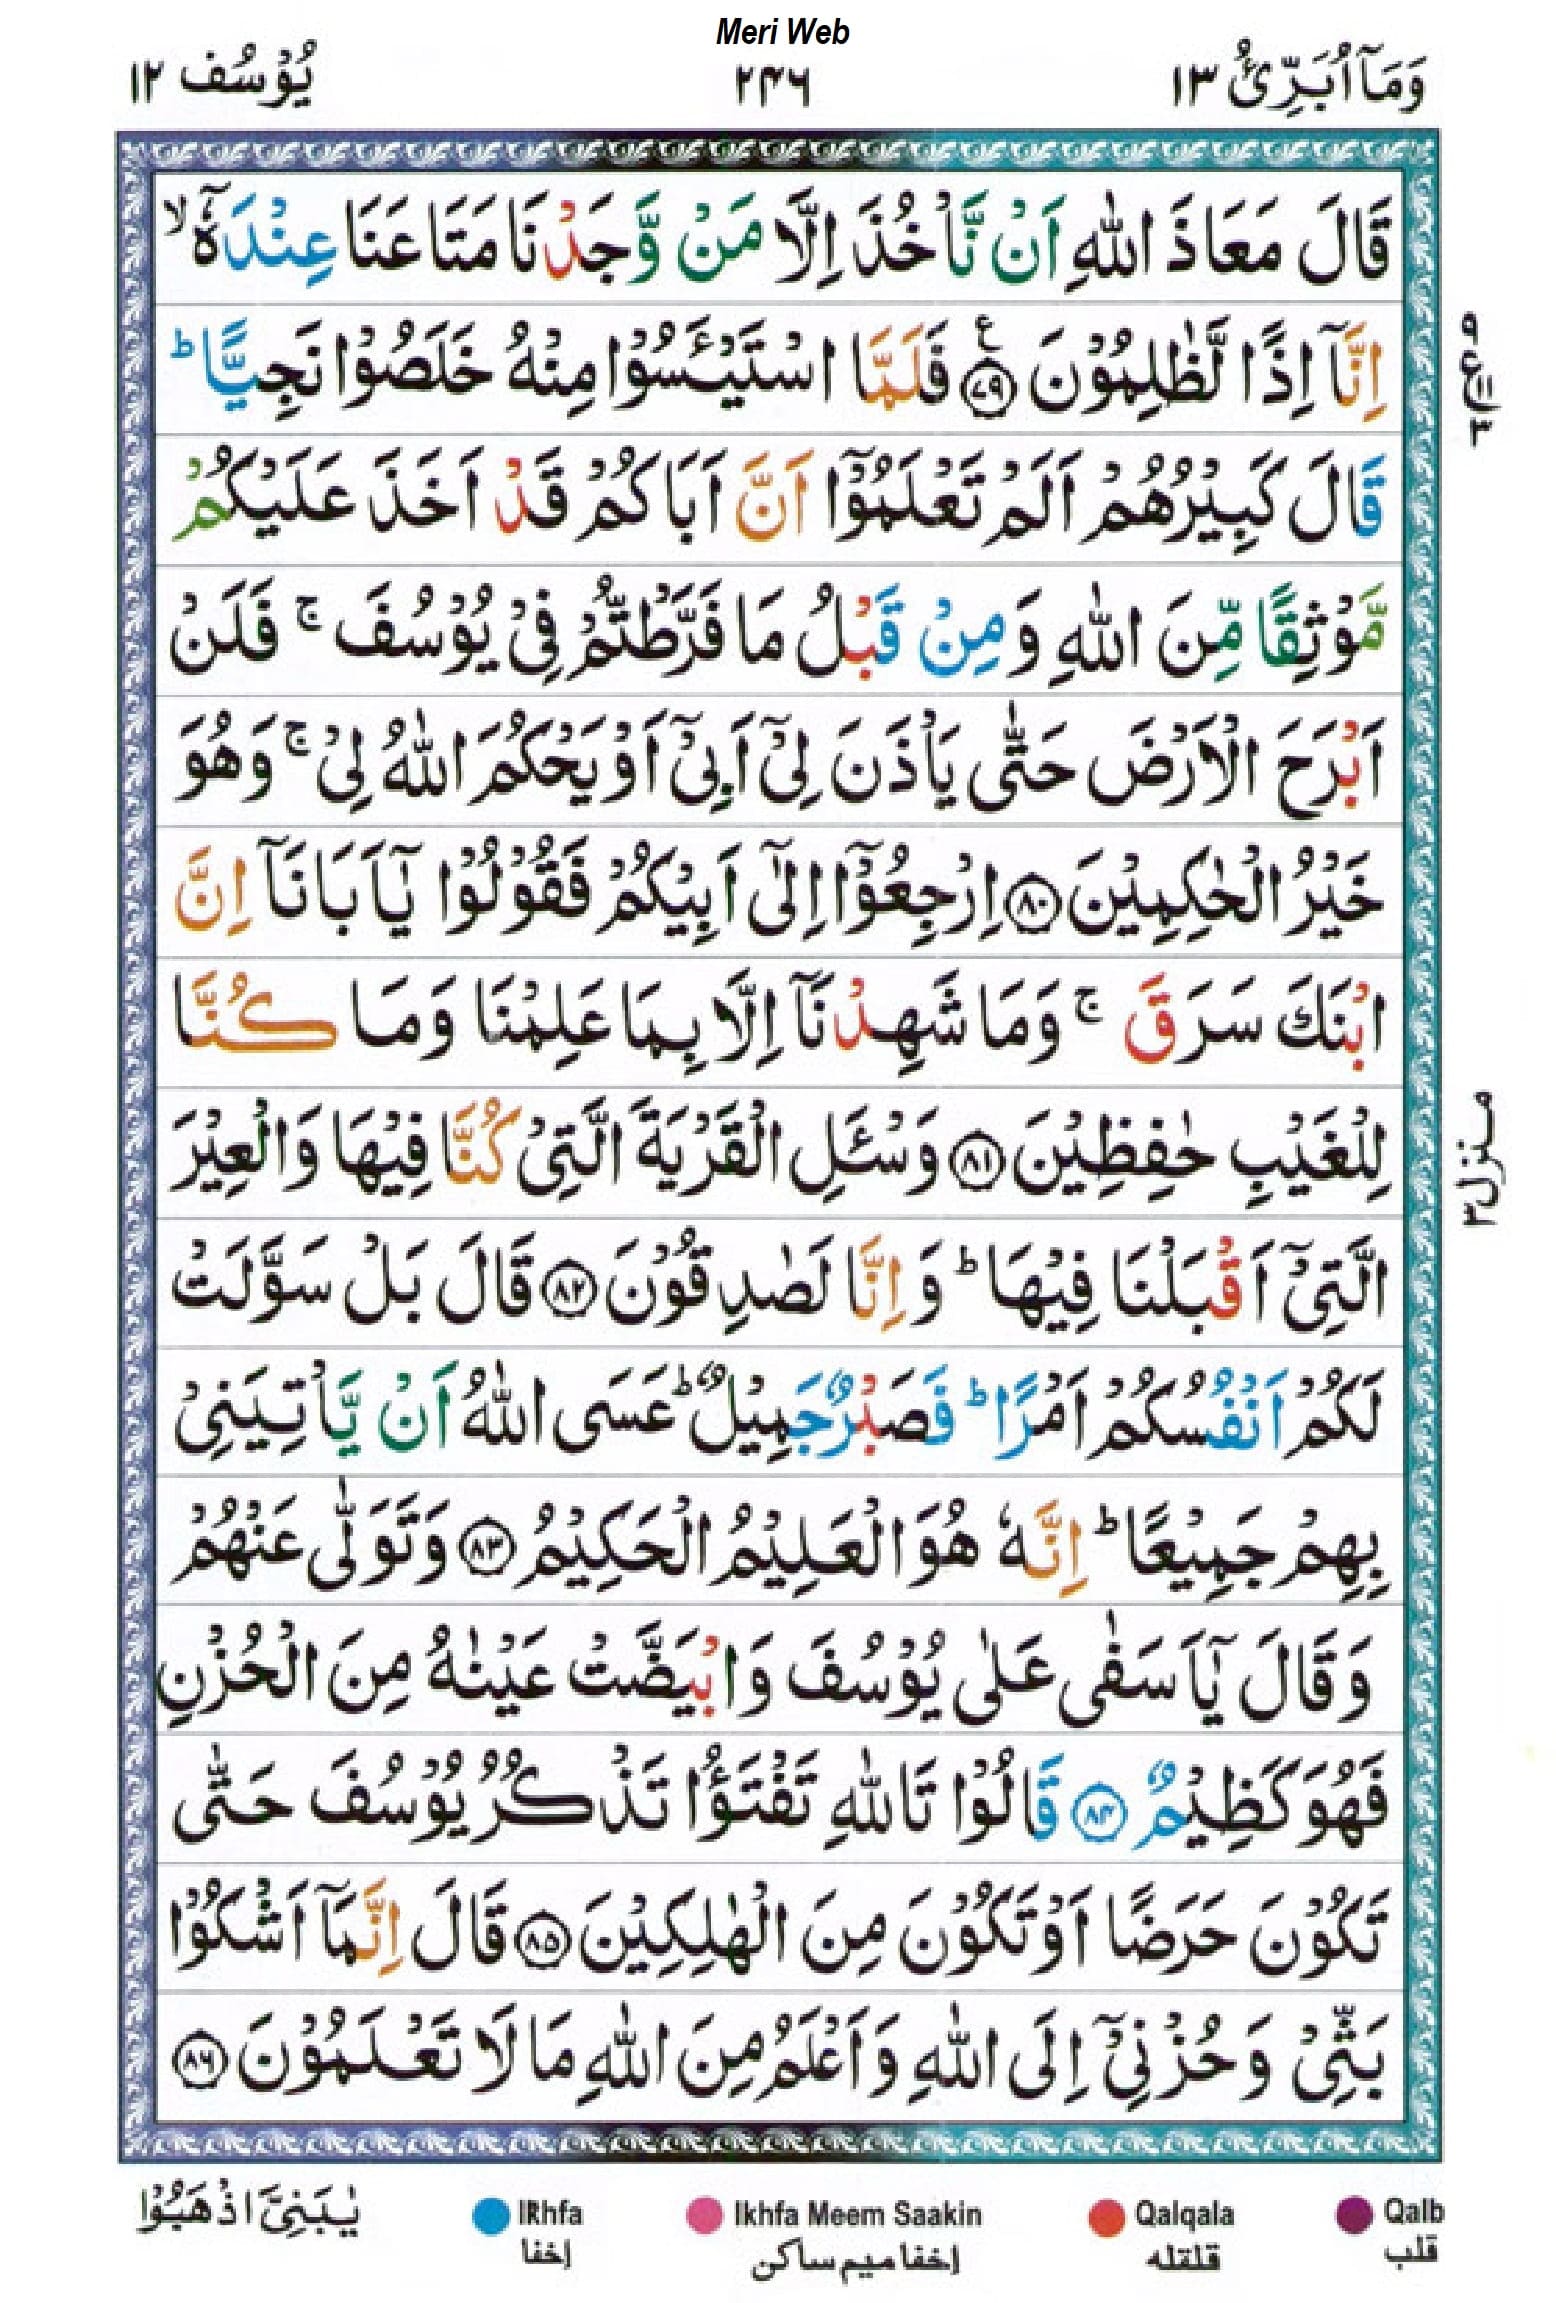 Meri Web
وَمَاۤ اُبَرِّئُ ١٣
٢٤٦
يُوْسُف ١٢
قَالَ مَعَاذَ اللّٰهِ اَنْ نَّاْخُذَ اِلَّا مَنْ وَّجَدْنَا مَتَاعَنَا عِنْدَهٗۤ ۙ
اِنَّاۤ اِذًا لَّظٰلِمُوْنَ ۧ‏﴿۷۹﴾ فَلَمَّا اسْتَيْـَٔسُوْا مِنْهُ خَلَصُوْا نَجِيًّا ؕ
قَالَ كَبِيْرُهُمْ اَلَمْ تَعْلَمُوْۤا اَنَّ اَبَاكُمْ قَدْ اَخَذَ عَلَيْكُمْ
مَّوْثِقًا مِّنَ اللّٰهِ وَمِنْ قَبْلُ مَا فَرَّطْتُّمْ فِىْ يُوْسُفَ ۚ فَلَنْ
اَبْرَحَ الْاَرْضَ حَتّٰى يَاْذَنَ لِىْۤ اَبِىْۤ اَوْ يَحْكُمَ اللّٰهُ لِىْ ۚ وَهُوَ
خَيْرُ الْحٰكِمِيْنَ ﴿۸۰﴾ اِرْجِعُوْۤا اِلٰٓى اَبِيْكُمْ فَقُوْلُوْا يٰۤاَبَانَاۤ اِنَّ
ابْنَكَ سَرَقَ ۚ وَمَا شَهِدْنَاۤ اِلَّا بِمَا عَلِمْنَا وَمَا كُنَّا
لِلْغَيْبِ حٰفِظِيْنَ ﴿۸۱﴾ وَسْـَٔلِ الْقَرْيَةَ الَّتِىْ كُنَّا فِيْهَا وَالْعِيْرَ
الَّتِىْۤ اَقْبَلْنَا فِيْهَا ؕ وَاِنَّا لَصٰدِقُوْنَ ﴿۸۲﴾ قَالَ بَلْ سَوَّلَتْ
لَكُمْ اَنْفُسُكُمْ اَمْرًا ؕ فَصَبْرٌ جَمِيْلٌ ؕ عَسَى اللّٰهُ اَنْ يَّاْتِيَنِىْ
بِهِمْ جَمِيْعًا ؕ اِنَّهٗ هُوَ الْعَلِيْمُ الْحَكِيْمُ ﴿۸۳﴾ وَتَوَلّٰى عَنْهُمْ
وَقَالَ يٰۤاَسَفٰى عَلٰى يُوْسُفَ وَابْيَضَّتْ عَيْنٰهُ مِنَ الْحُزْنِ
فَهُوَ كَظِيْمٌ ﴿۸۴﴾ قَالُوْا تَاللّٰهِ تَفْتَؤُا تَذْكُرُ يُوْسُفَ حَتّٰى
تَكُوْنَ حَرَضًا اَوْ تَكُوْنَ مِنَ الْهٰلِكِيْنَ ﴿۸۵﴾ قَالَ اِنَّمَاۤ اَشْكُوْا
بَثِّىْ وَحُزْنِىْۤ اِلَى اللّٰهِ وَاَعْلَمُ مِنَ اللّٰهِ مَا لَا تَعْلَمُوْنَ ﴿۸۶﴾
٩ ع ٣
منزل ٣
يٰبَنِىَّ اذْهَبُوْا
Ikhfa
إخفا
Ikhfa Meem Saakin
إخفا ميم ساكن
Qalqala
قلقله
Qalb
قلب